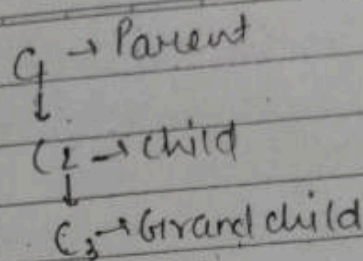 C1 → Parent
↓
C2 → Child
↓
C3 → Grand child